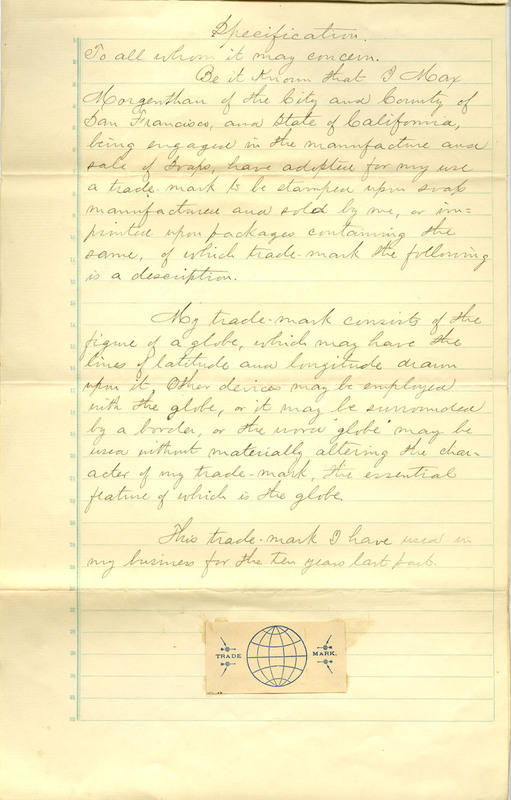 Specification.
To all whom it may concern.
Be it Known that I Max
Morgenthau of the City and County of
San Francisco, and State of California,
being engaged in the manufacture and
sale of Soaps, have adopted for my use
a trade-mark to be stamped upon soap
manufactured and sold by me, or im=
printed upon packages containing the
same, of which trade-mark the following
is a description.
My trade-mark consists of the
figure of a globe, which may have the
lines of latitude and longitude drawn
upon it, Other devices may be employed
with the globe, or it may be surrounded
by a border, or the word "globe" may be
used without materially altering the char-
acter of my trade-mark, the essential
feature of which is the globe.
This trade-mark I have used in
my business for the ten years last past.
TRADE MARK.